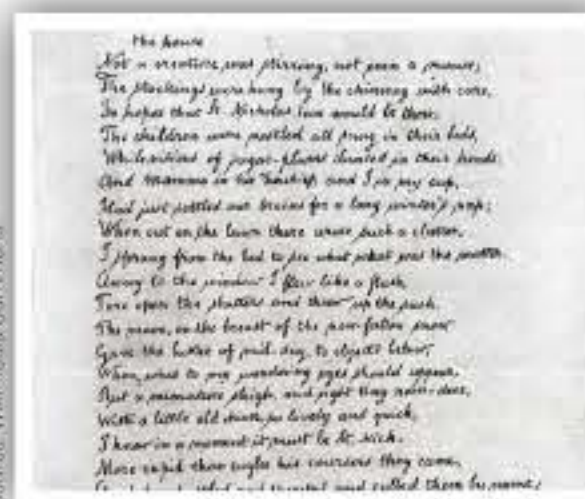 the house
Not a creature was stirring, not even a mouse;
The stockings were hung by the chimney with care,
In hopes that St. Nicholas soon would be there;
The children were nestled all snug in their beds,
While visions of sugar-plums danced in their heads;
And Mamma in her 'kerchief, and I in my cap,
Had just settled our brains for a long winter's nap;
When out on the lawn there arose such a clatter,
I sprang from the bed to see what was the matter.
Away to the window I flew like a flash,
Tore open the shutters and threw up the sash.
The moon, on the breast of the new-fallen snow
Gave the lustre of mid-day to objects below,
When, what to my wondering eyes should appear,
But a miniature sleigh, and eight tiny rein-deer,
With a little old driver, so lively and quick,
I knew in a moment it must be St. Nick.
More rapid than eagles his coursers they came,
and called them by name;